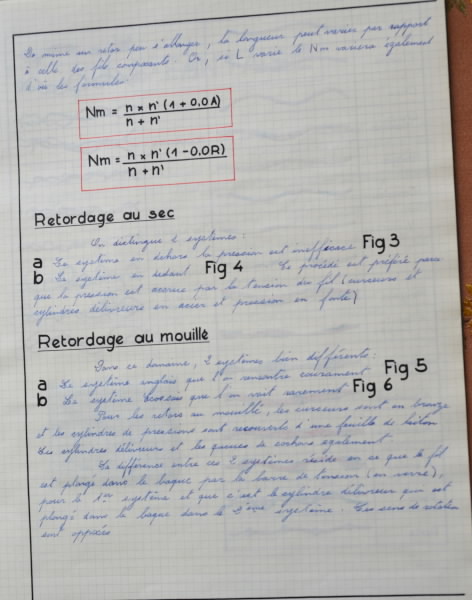 De même un retor peu s'allonger, la longueur peut varier par rapport
à celle des fils composants. Or, si L varie le Nm variera également
les formules:
Nm = n × n' (1 + 0,0A)
n + n'
Nm = n × n' (1 - 0,0R)
n + n'
Retordage au sec
On distingue 2 systèmes:
a Le système en dehors la pression est inefficace Fig 3
b Le système en dedans Fig 4 Ce procédé est préféré parce
que la pression est accrue par la tension du fil (curseurs et
cylindres délivreurs en acier et pression en fonte)
Retordage au mouillé
Dans ce domaine, 2 systèmes bien différents:
a Le système anglais que l'on rencontre couramment Fig 5
b Le système écossais que l'on voit rarement Fig 6
Pour les retors au mouillé, les curseurs sont en bronze
et les cylindres de pressions sont recouverts d'une feuille de laiton
Les cylindres délivreurs et les queues de cochons également.
La différence entre ces 2 systèmes réside en ce que le fil
est plongé dans la bague par la barre de tension (en verre),
pour le 1er système et que c'est le cylindre délivreur qui est
plongé dans la bague dans le 2ème système. Les sens de rotation
sont opposés